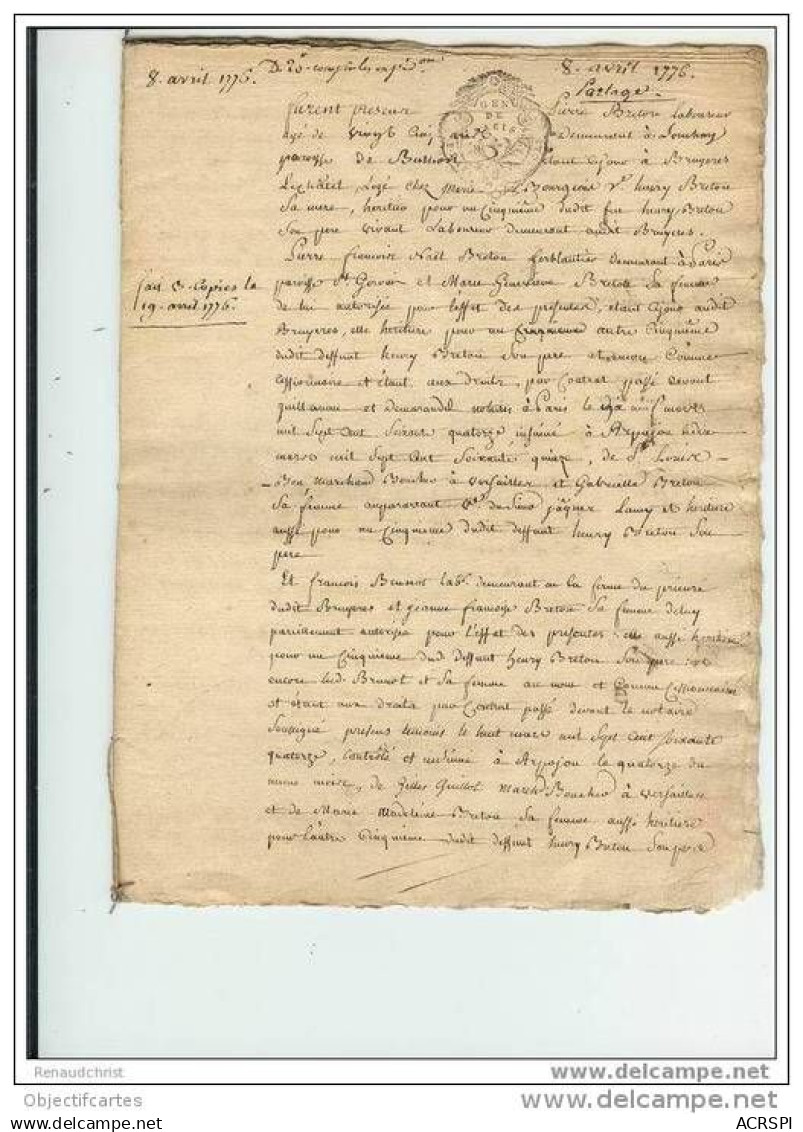 8. avril 1776.
8. avril 1776.
Partage.
GEN
DE
furent presens Pierre Breton laboureur
agé de vingt cinq ans demeurant à
paroisse de etant à Bruyeres
Lechatel logé chez Marie Bourgeois Ve. henry Breton
Sa mere, heritier pour un Cinquieme dudit feu henry Breton
Son pere vivant Laboureur demeurant audit Bruyeres.
Pierre françois Noël Breton ferblantier demeurant à Paris
paroisse St. Gervais et Marie Genevieve Breton Sa femme
de lui autorisée pour l'effet des presentes, etant audit
Bruyeres, elle heritiere pour un autre Cinquieme
dudit deffunt henry Breton Son pere et encore Comme
Cessionnaire et étant aux droits, par Contrat passé devant
Guillaume et notaires à Paris le
mil Sept Cent Soixante quatorze insinué à Arpajon
mars mil Sept Cent Soixante quinze, de St. Louis
Marchand Boucher à Versailles, et Gabrielle Breton
Sa femme auparavant Ve. du Sieur jâques Lamy et heritiere
aussi pour un Cinquieme dudit deffunt henry Breton Son
pere
Et françois Brunot lab. demeurant en la ferme du prieuré
dudit Bruyeres et jeanne françoise Breton Sa femme deluy
pareillement autorisée pour l'effet des presentes elle aussi heritiere
pour un Cinquieme dud. deffunt henry Breton Son pere et
encore led. Brunot et Sa femme au nom et Comme Cessionnaires
et étant aux droits par Contrat passé devant le notaire
Soussigné presens temoins le huit mars mil Sept Cent Soixante
quatorze, Contrôlé et insinué à Arpajon le quatorze du
meme mois, de Gilles Guillot March. Boucher à Versailles
et de Marie Madeleine Breton Sa femme aussi heritiere
pour l'autre Cinquieme dudit deffunt henry Breton Son pere
fait 3. Copies le
19. avril 1776.
Renaudchrist
delcampe.net
Objectifcartes
delcampe.net
ACRSPI